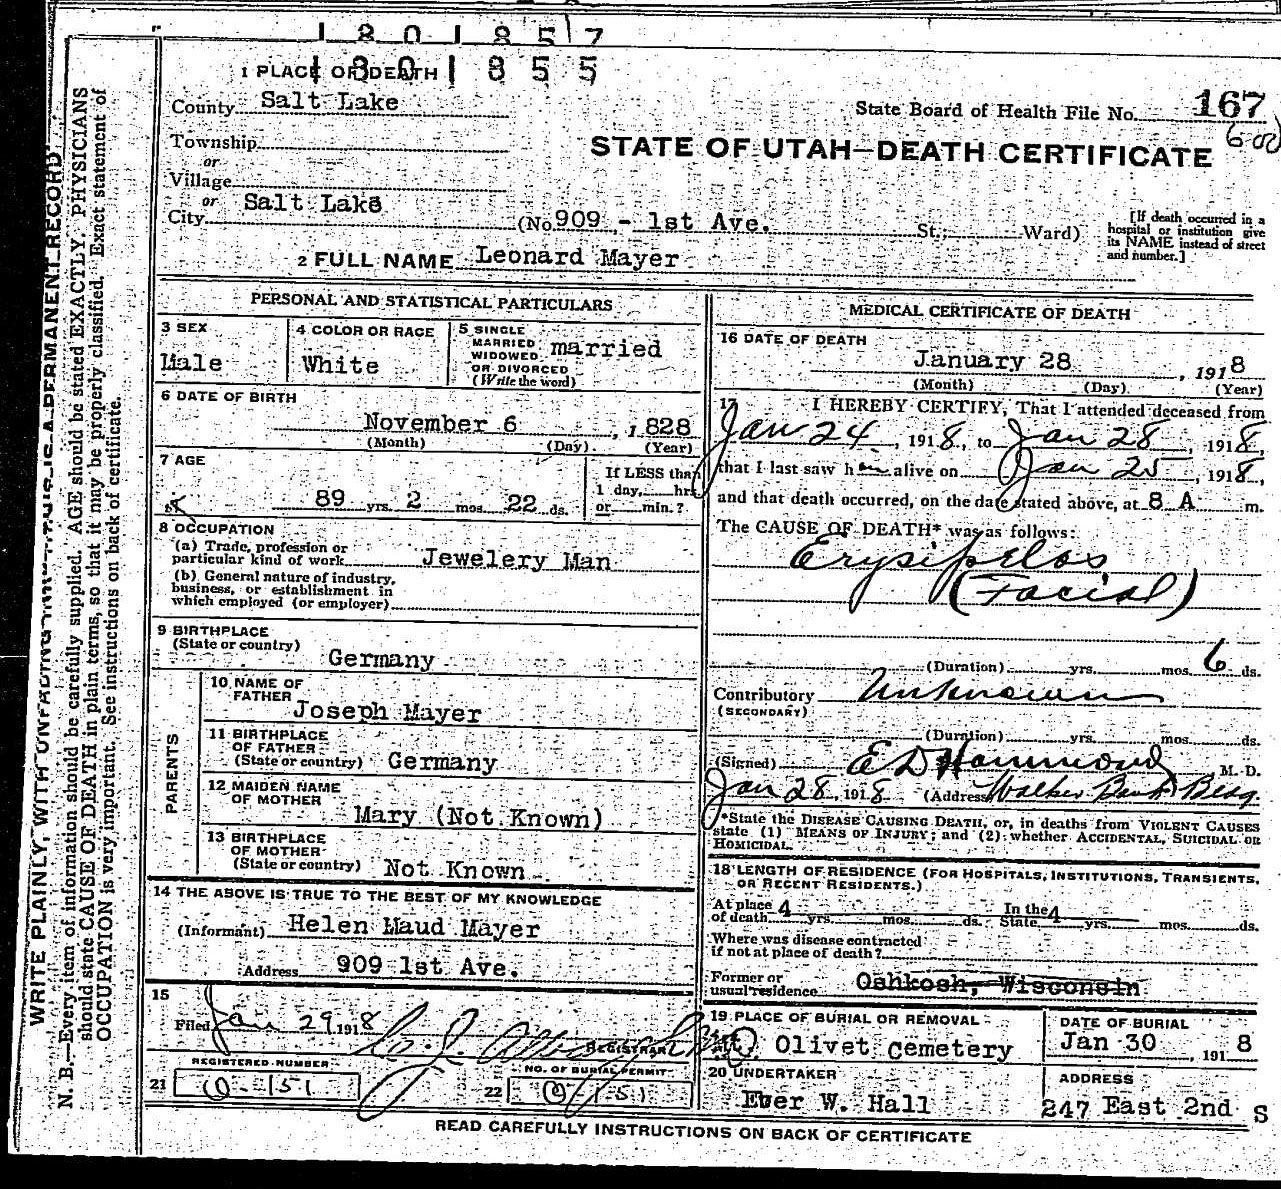 1801857
1801855
1 PLACE OF DEATH
County Salt Lake
State Board of Health File No. 167
Township
or
STATE OF UTAH—DEATH CERTIFICATE
Village
or
City Salt Lake
(No. 909 - 1st Ave. St.; Ward)
[If death occurred in a hospital or institution give its NAME instead of street and number.]
2 FULL NAME Leonard Mayer
PERSONAL AND STATISTICAL PARTICULARS
3 SEX
Male
4 COLOR OR RACE
White
5 SINGLE
MARRIED
WIDOWED
OR DIVORCED
(Write the word)
married
6 DATE OF BIRTH
November 6, 1828
(Month) (Day) (Year)
7 AGE
89 yrs. 2 mos. 22 ds.
If LESS than
1 day, hrs.
or min.?
8 OCCUPATION
(a) Trade, profession or
particular kind of work Jewelery Man
(b) General nature of industry,
business, or establishment in
which employed (or employer)
9 BIRTHPLACE
(State or country)
Germany
PARENTS
10 NAME OF
FATHER
Joseph Mayer
11 BIRTHPLACE
OF FATHER
(State or country) Germany
12 MAIDEN NAME
OF MOTHER
Mary (Not Known)
13 BIRTHPLACE
OF MOTHER
(State or country) Not Known
14 THE ABOVE IS TRUE TO THE BEST OF MY KNOWLEDGE
(Informant) Helen Maud Mayer
Address 909 1st Ave.
15
Filed Jan 29 1918
REGISTRAR
REGISTERED NUMBER
21 0-151
NO. OF BURIAL PERMIT
22 0-151
MEDICAL CERTIFICATE OF DEATH
16 DATE OF DEATH
January 28, 1918
(Month) (Day) (Year)
17 I HEREBY CERTIFY, That I attended deceased from
Jan 24, 1918, to Jan 28, 1918,
that I last saw him alive on Jan 25, 1918,
and that death occurred, on the date stated above, at 8 A m.
The CAUSE OF DEATH* was as follows:
Erysipelas
(Facial)
(Duration) yrs. mos. 6 ds.
Contributory Unknown
(SECONDARY)
(Duration) yrs. mos. ds.
(Signed) E D Hammond M. D.
Jan 28, 1918 (Address) Walker Bank Bldg.
*State the DISEASE CAUSING DEATH, or, in deaths from VIOLENT CAUSES
state (1) MEANS OF INJURY; and (2) whether ACCIDENTAL, SUICIDAL OR
HOMICIDAL.
18 LENGTH OF RESIDENCE (FOR HOSPITALS, INSTITUTIONS, TRANSIENTS,
OR RECENT RESIDENTS.)
At place
of death 4 yrs. mos. ds. In the State 4 yrs. mos. ds.
Where was disease contracted
if not at place of death?
Former or
usual residence Oshkosh, Wisconsin
19 PLACE OF BURIAL OR REMOVAL
Mt Olivet Cemetery
DATE OF BURIAL
Jan 30, 1918
20 UNDERTAKER
Eber W. Hall
ADDRESS
247 East 2nd S
READ CAREFULLY INSTRUCTIONS ON BACK OF CERTIFICATE
WRITE PLAINLY, WITH UNFADING INK—THIS IS A PERMANENT RECORD
N. B.—Every item of information should be carefully supplied. AGE should be stated EXACTLY. PHYSICIANS
should state CAUSE OF DEATH in plain terms, so that it may be properly classified. Exact statement of
OCCUPATION is very important. See instructions on back of certificate.